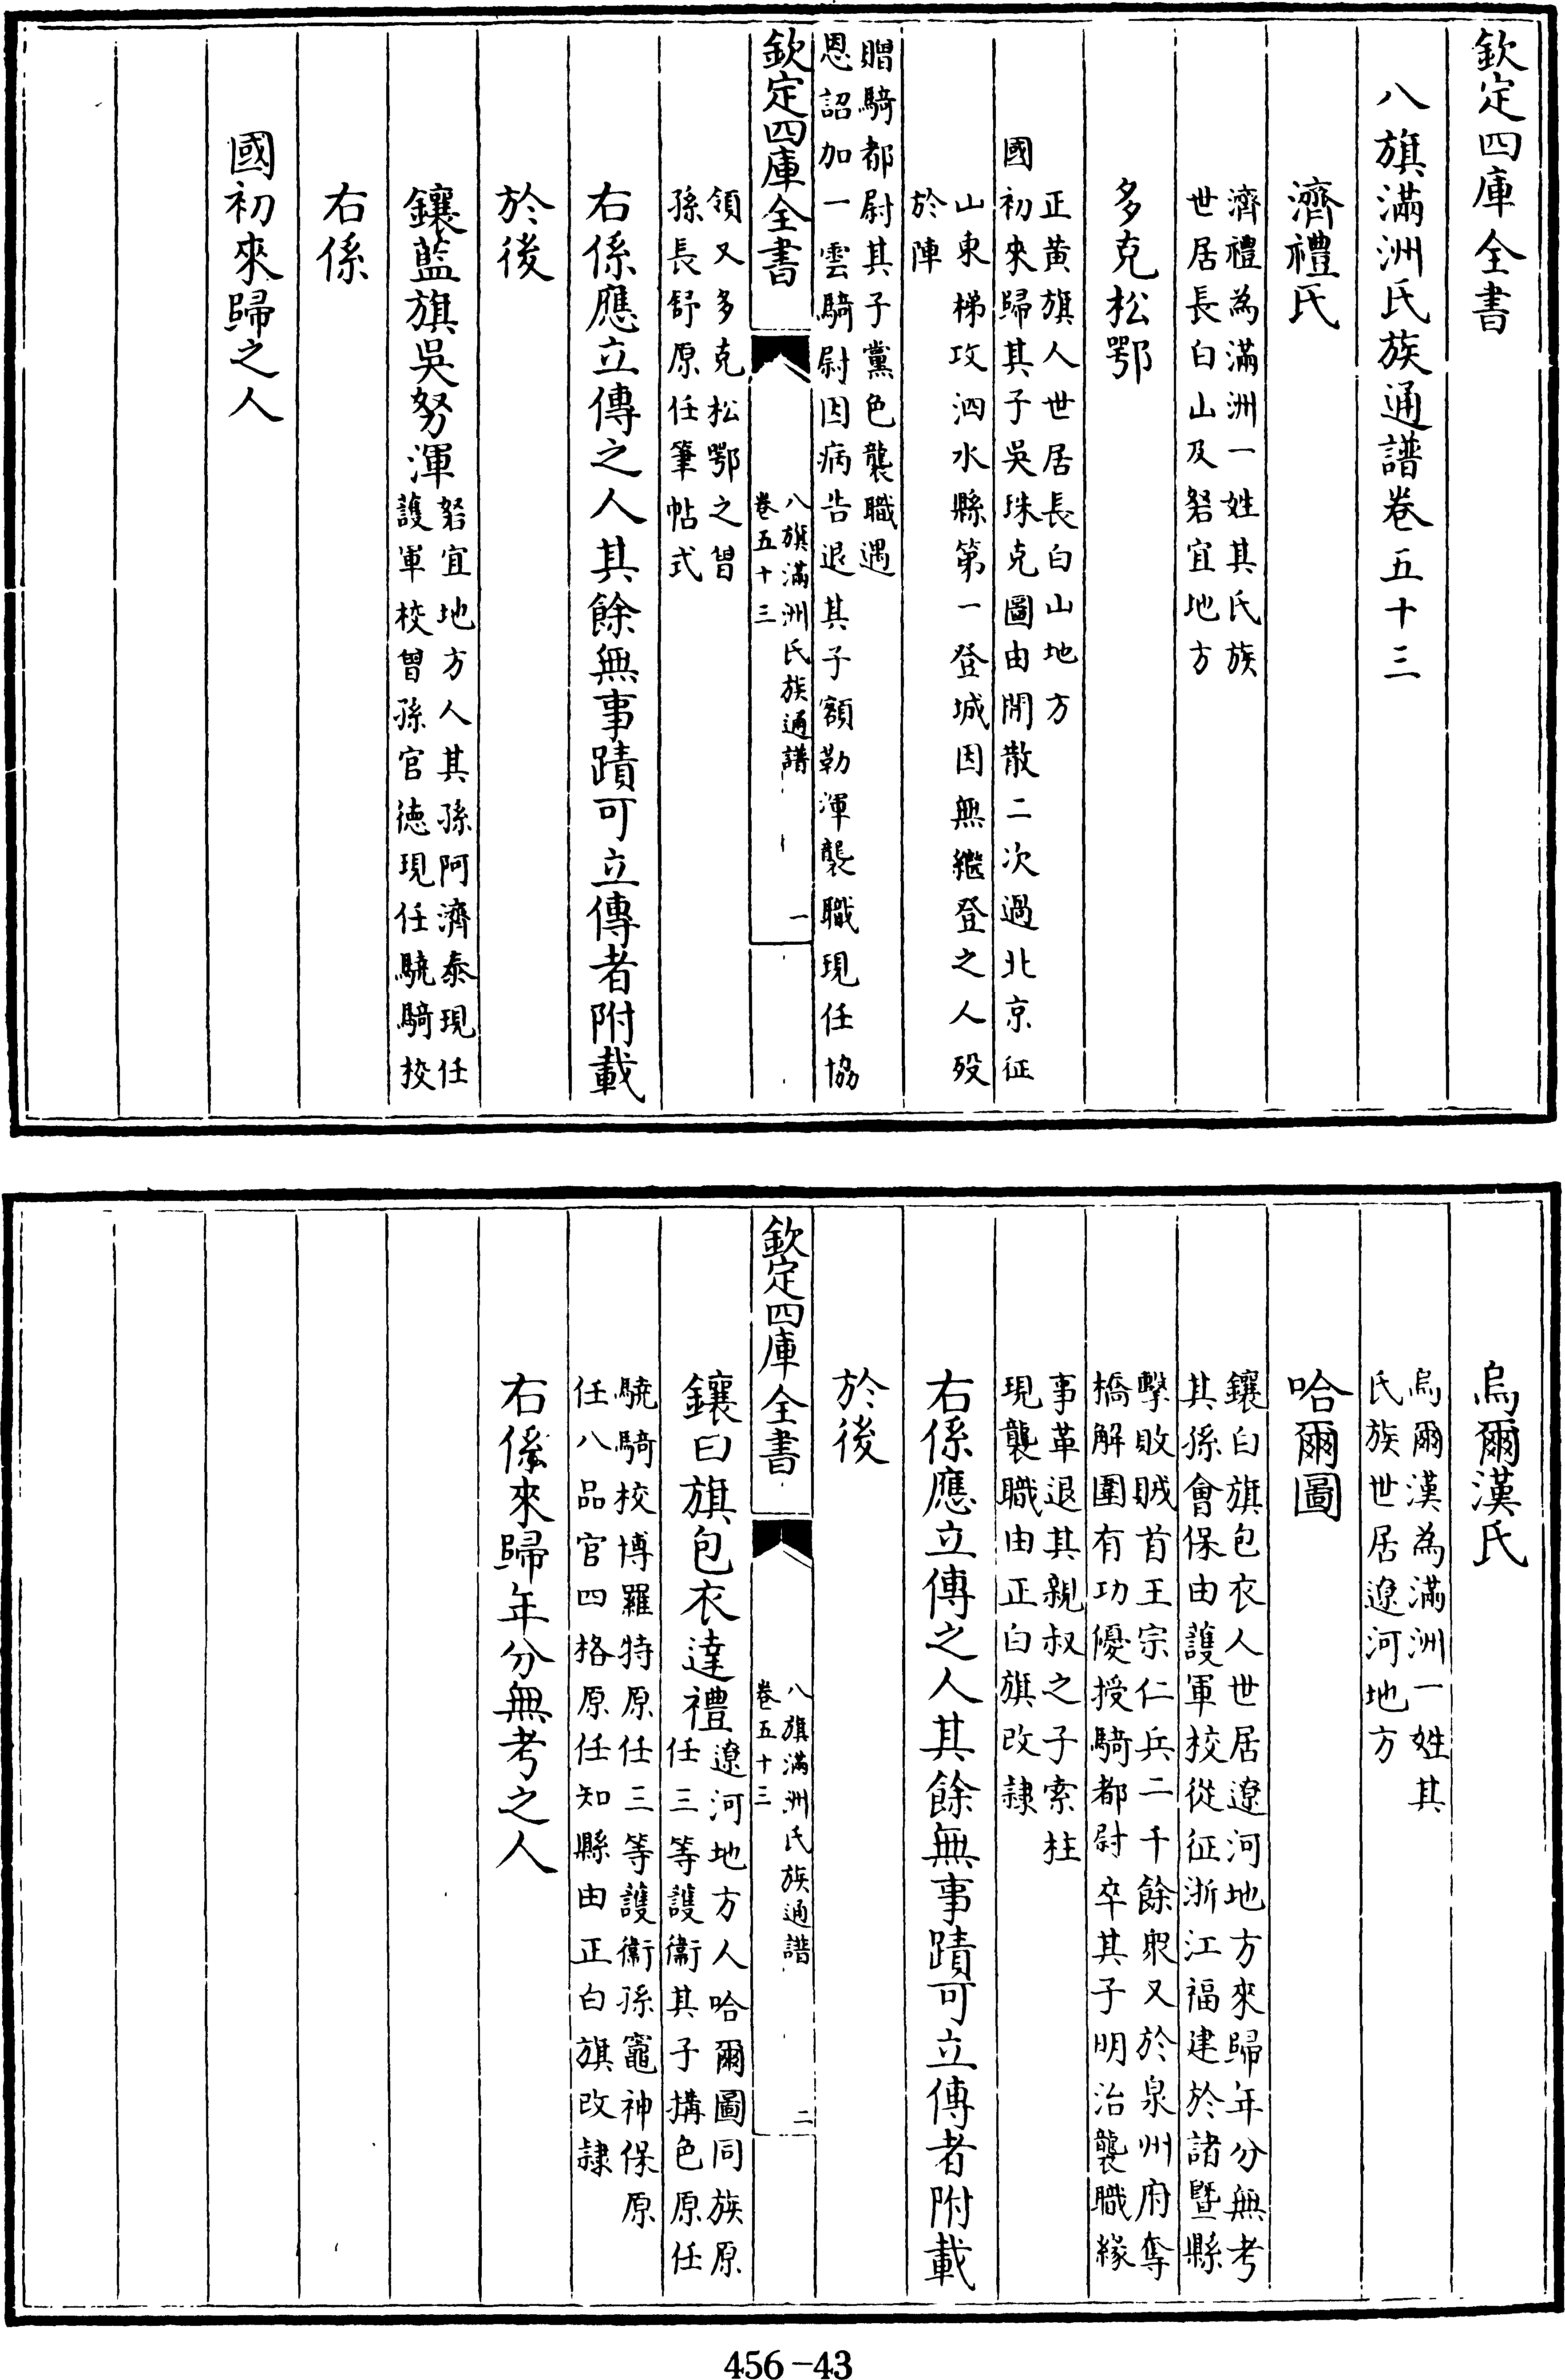 欽定四庫全書
八旗滿洲氏族通譜卷五十三
濟禮氏
濟禮為滿洲一姓其氏族
世居長白山及砮宜地方
多克松鄂
正黃旗人世居長白山地方
國初來歸其子吳珠克圖由閒散二次過北京征
山東梯攻泗水縣第一登城因無繼登之人歿
於陣
贈騎都尉其子黨色襲職遇
恩詔加一雲騎尉因病告退其子額勒渾襲職現任協
欽定四庫全書
八旗滿洲氏族通譜
卷五十三
一
領又多克松鄂之曾
孫長舒原任筆帖式
右係應立傳之人其餘無事蹟可立傳者附載
於後
鑲藍旗吳努渾
砮宜地方人其孫阿濟泰現任
護軍校曾孫官德現任驍騎校
右係
國初來歸之人
烏爾漢氏
烏爾漢為滿洲一姓其
氏族世居遼河地方
哈爾圖
鑲白旗包衣人世居遼河地方來歸年分無考
其孫會保由護軍校從征浙江福建於諸暨縣
擊敗賊首王宗仁兵二千餘衆又於泉州府奪
橋解圍有功優授騎都尉卒其子明治襲職緣
事革退其親叔之子索柱
現襲職由正白旗改隸
右係應立傳之人其餘無事蹟可立傳者附載
於後
欽定四庫全書
八旗滿洲氏族通譜
卷五十三
二
鑲白旗包衣達禮
遼河地方人哈爾圖同族原
任三等護衞其子搆色原任
驍騎校博羅特原任三等護衞孫竈神保原
任八品官四格原任知縣由正白旗改隸
右係來歸年分無考之人
456-43